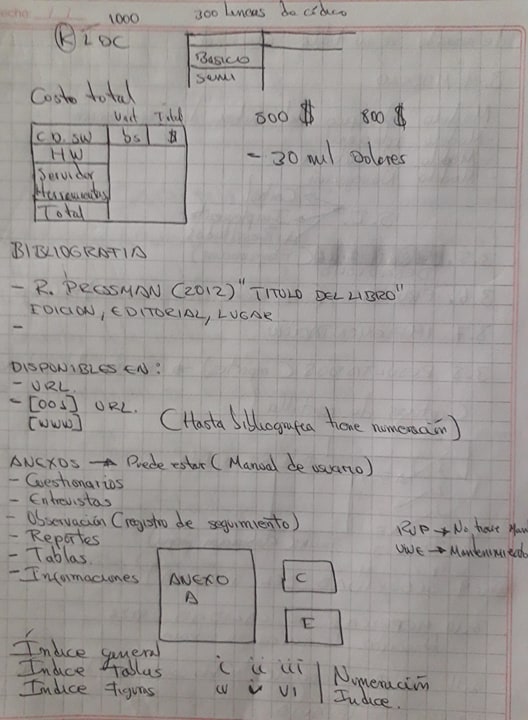 echo
1000
300 lineas de código
(K) LOC
Basico
Semi
Costo total
Unit Total
CD. SW bs $
HW
Servidor
Herramientas
Total
800 $ 800 $
- 30 mil Dolores
BIBLIOGRAFIA
- R. PRESSMAN (2012) "TITULO DEL LIBRO"
EDICION, EDITORIAL, LUGAR
-
DISPONIBLES EN:
- URL.
- [005] URL.
[WWW]
(Hasta bibliografica tiene numeración)
ANEXOS → Puede estar (Manual de usuario)
- Cuestionarios
- Entrevistas
- Observación (registro de seguimiento)
- Reportes
- Tablas.
- Informaciones
RUP → No tiene Man
UWE → Mantenimiedo
ANEXO
A
C
E
Índice general
Indice tablas i ii iii
Indice figuras iv v VI
Numeración
Indice.